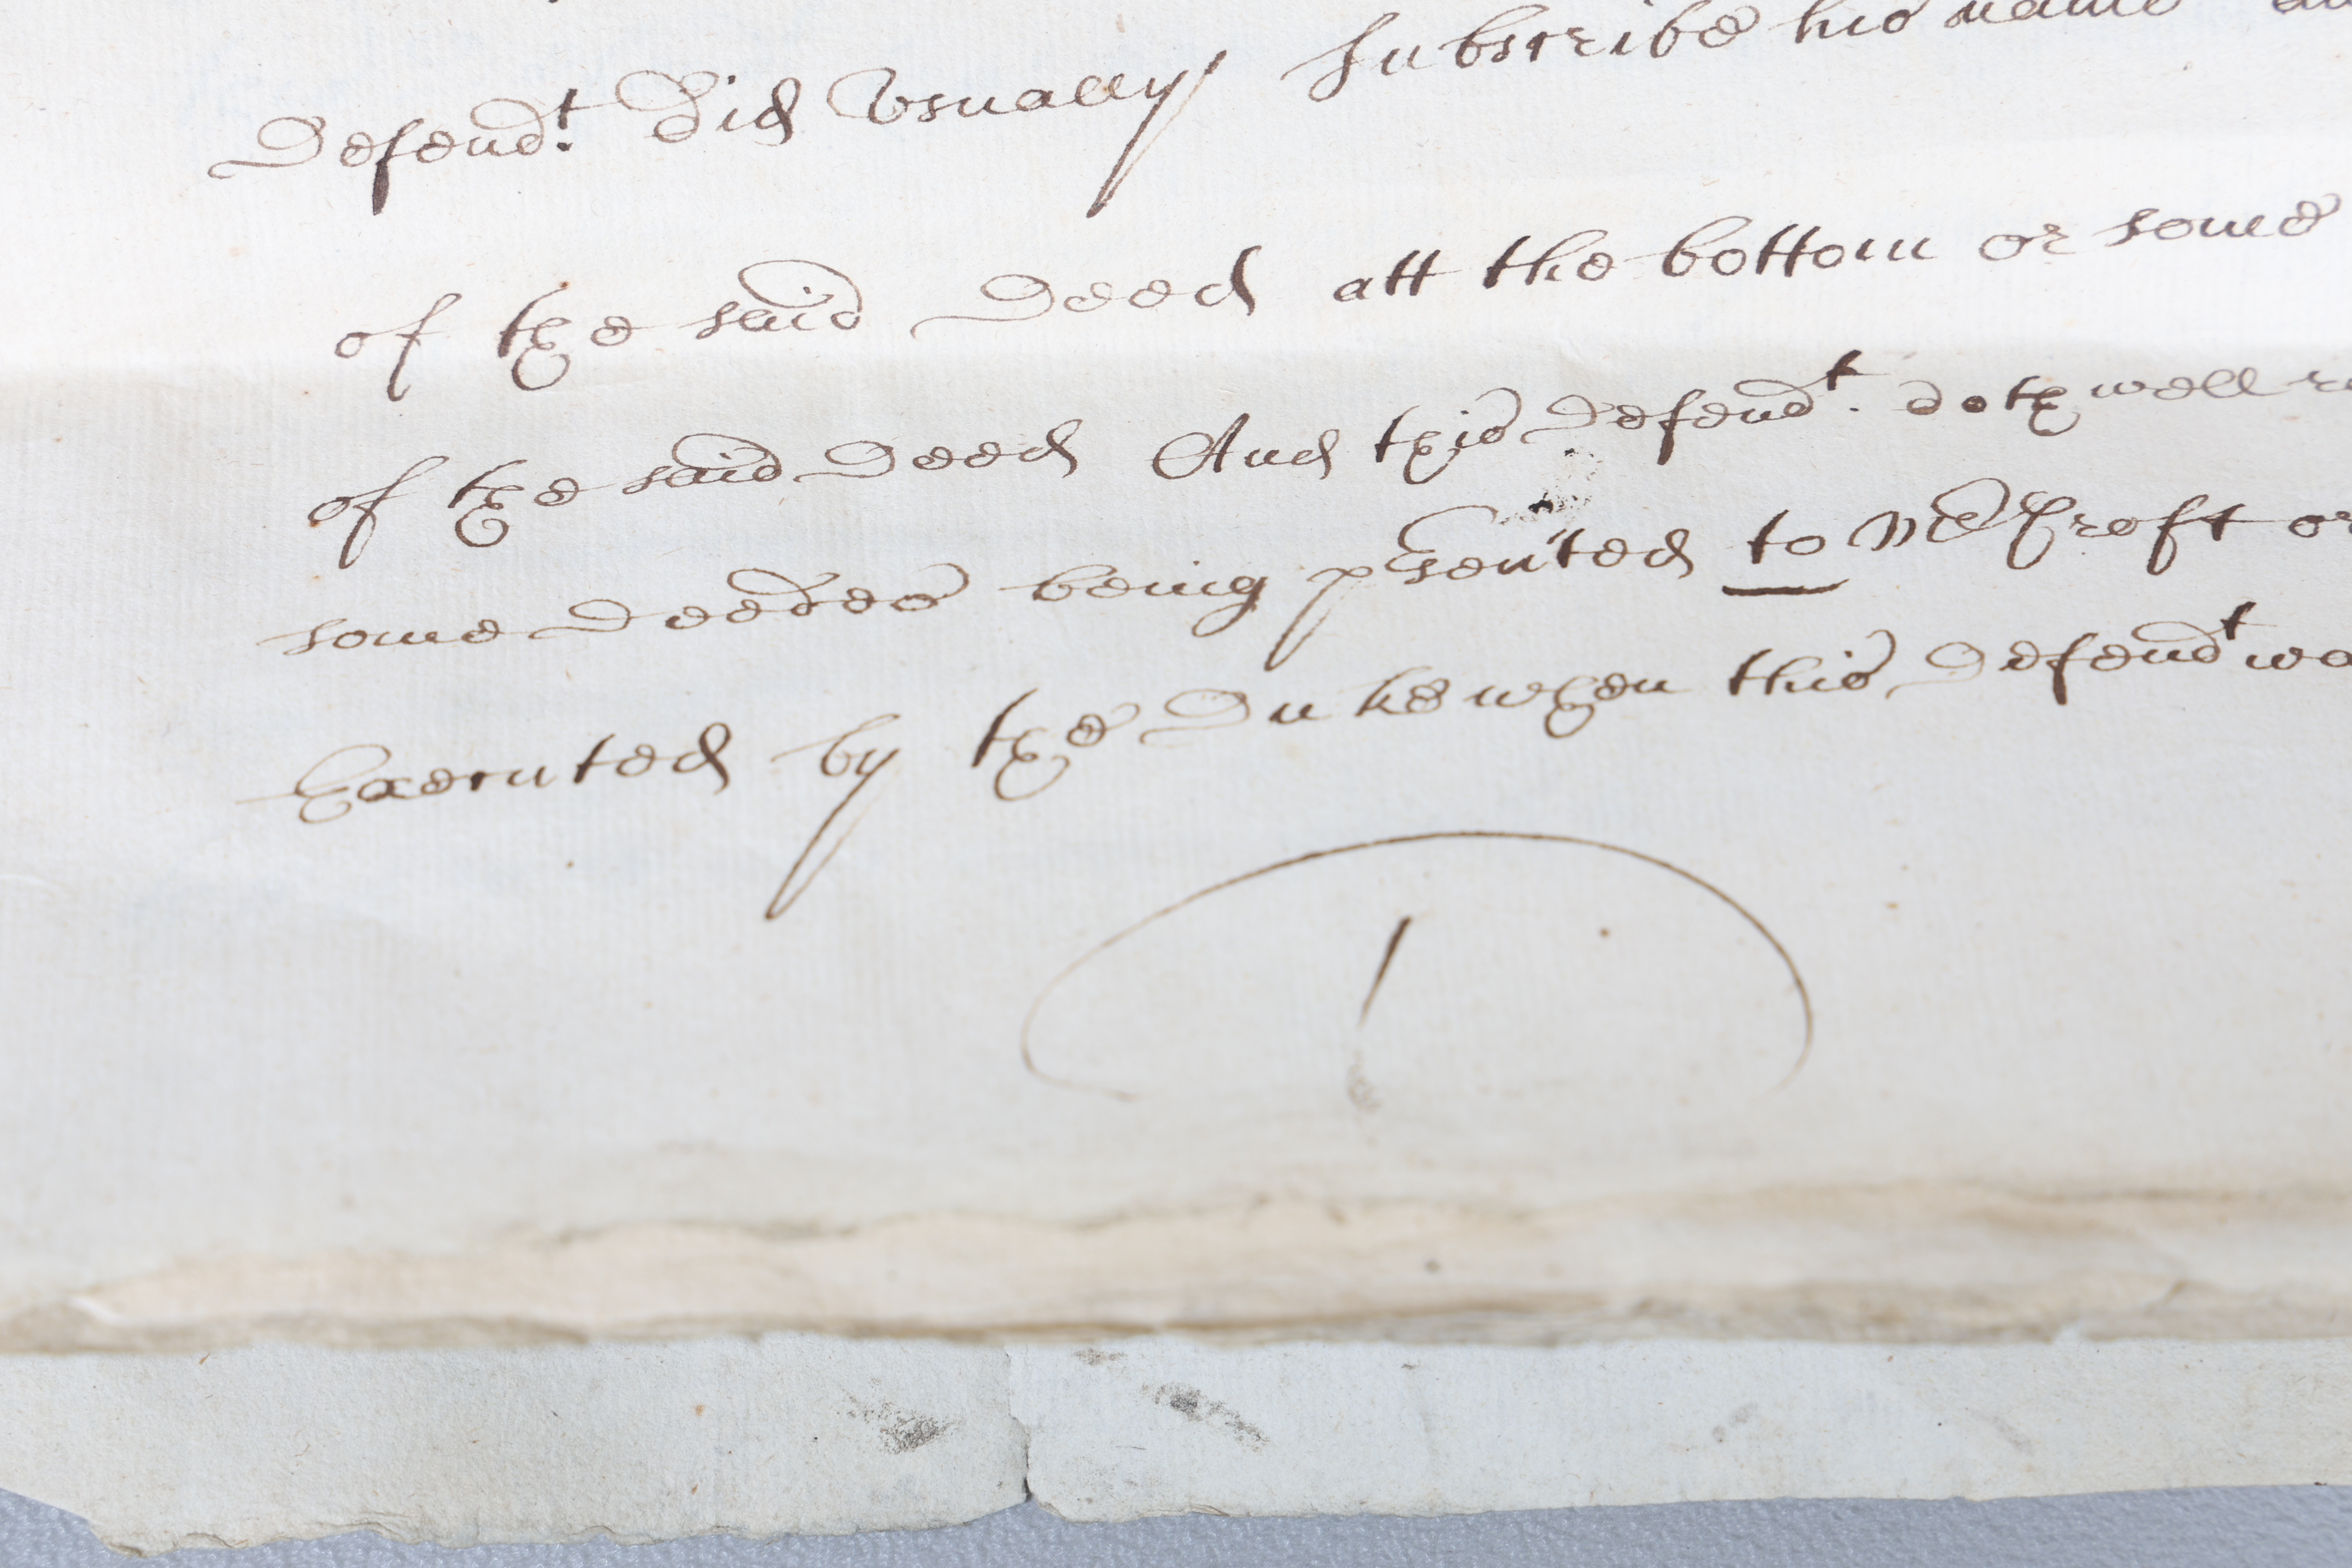 Defend.t Did Vsually Subscribe his name
of the said Deed att the bottom or some
of the said Deed And this Defend.t doth well
some Deedes being psented to Mr Croft or
Executed by the Duke when this Defendt